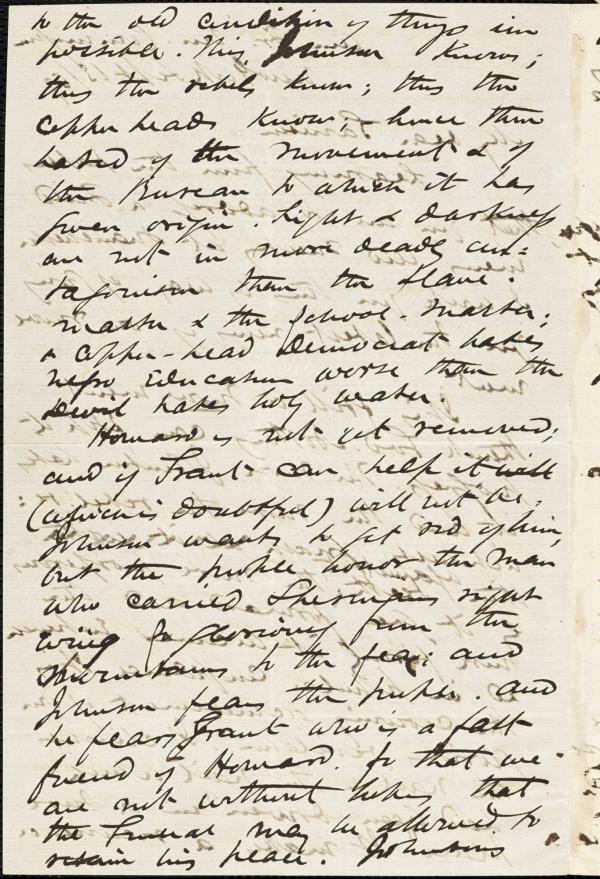 to the old condition of things im
possible. This, Johnson knows;
this the rebels know; this the
Copper heads know; hence their
hatred of the movement & of
the Bureau to which it has
given origin. Light & darkness
are not in more deadly an=
tagonism than the slave-
master & the school-master;
a copper-head Democrat hates
negro Education worse than the
Devil hates holy water.
Howard is not yet removed;
and if Grant can help it will
(which is doubtful) will not be.
Johnson wants to get rid of him,
but the people honor the man
who carried Sherman's right
wing so gloriously from the
mountains to the sea; and
Johnson fears the people. and
he fears Grant who is a fast
friend of Howard. So that we
are not without hopes that
the General may be allowed to
retain his place. Johnson's